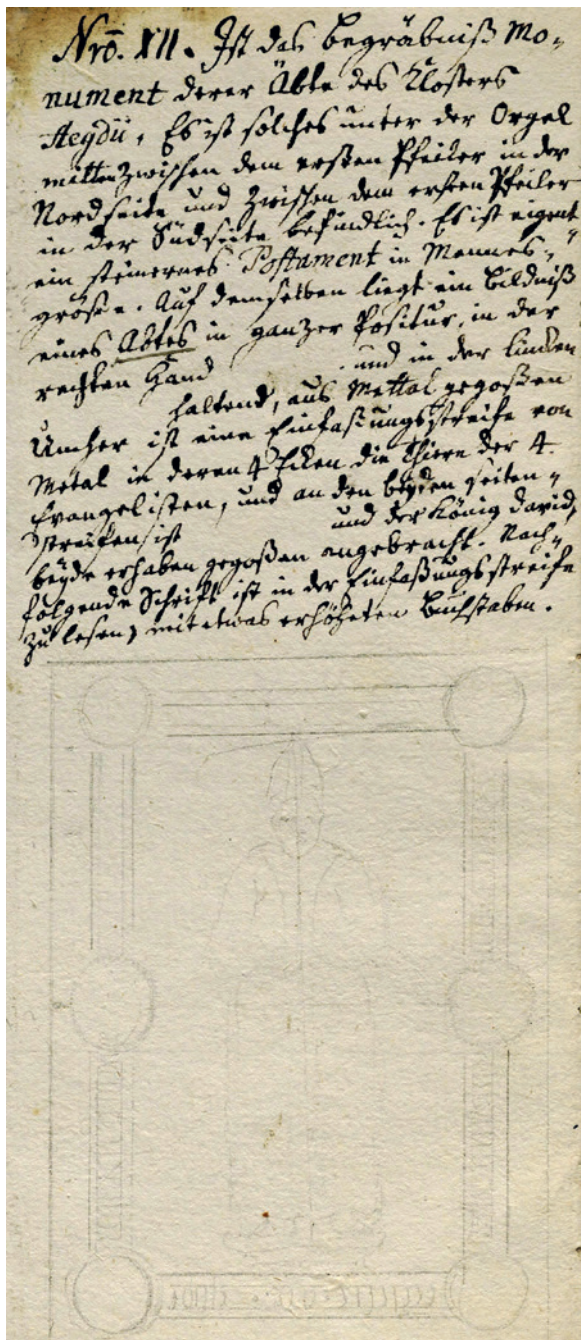 Nrõ. XII. Ist das begräbniß Mo-
nument derer Äbte des Klosters
Aegdii. Es ist solches unter der Orgel
mitten zwischen dem ersten Pfeiler in der
Nordseite und zwischen dem ersten Pfeiler
in der Südseite befindlich. Es ist eigentl
ein steinernes Postament in Mannes-
größe. Auf demselben liegt ein Bildniß
eines Abtes in ganzer Positur, in der
rechten Hand und in der lincken
haltend, aus Mettal gegoßen
Umher ist eine Einfaßungsstreife von
Metal in deren 4 Ecken die Thiere der 4.
Evangelisten, und an den beyden seiten-
streifen ist und der König david,
beyde erhaben gegoßen angebracht. Nach-
folgende Schrifft ist in der Einfaßungsstreife
zu lesen, mit etwas erhöheten Buchstaben.